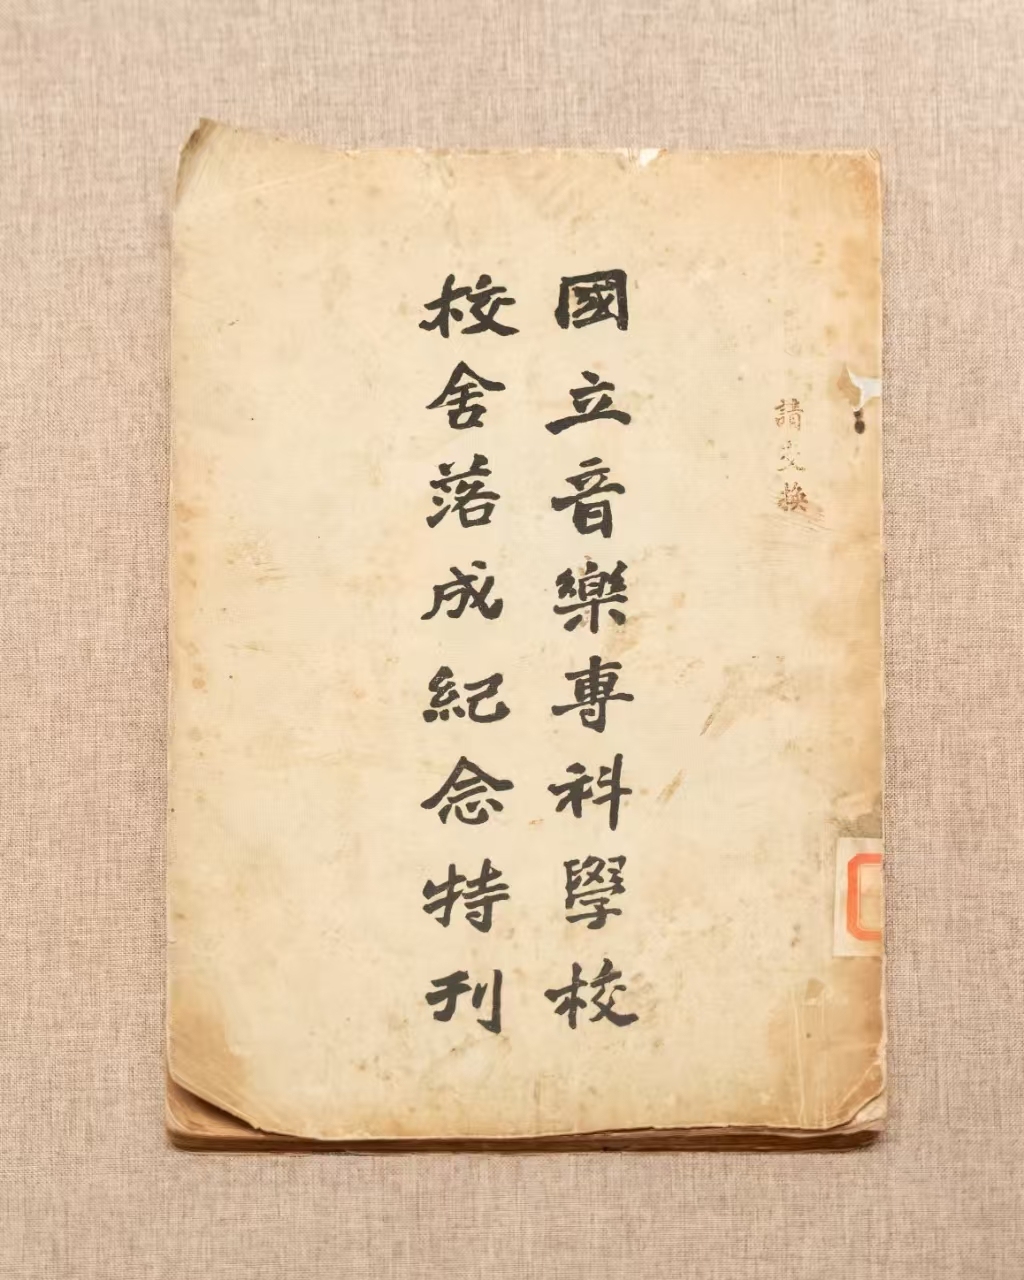 國立音樂專科學校
校舍落成紀念特刊
請交換